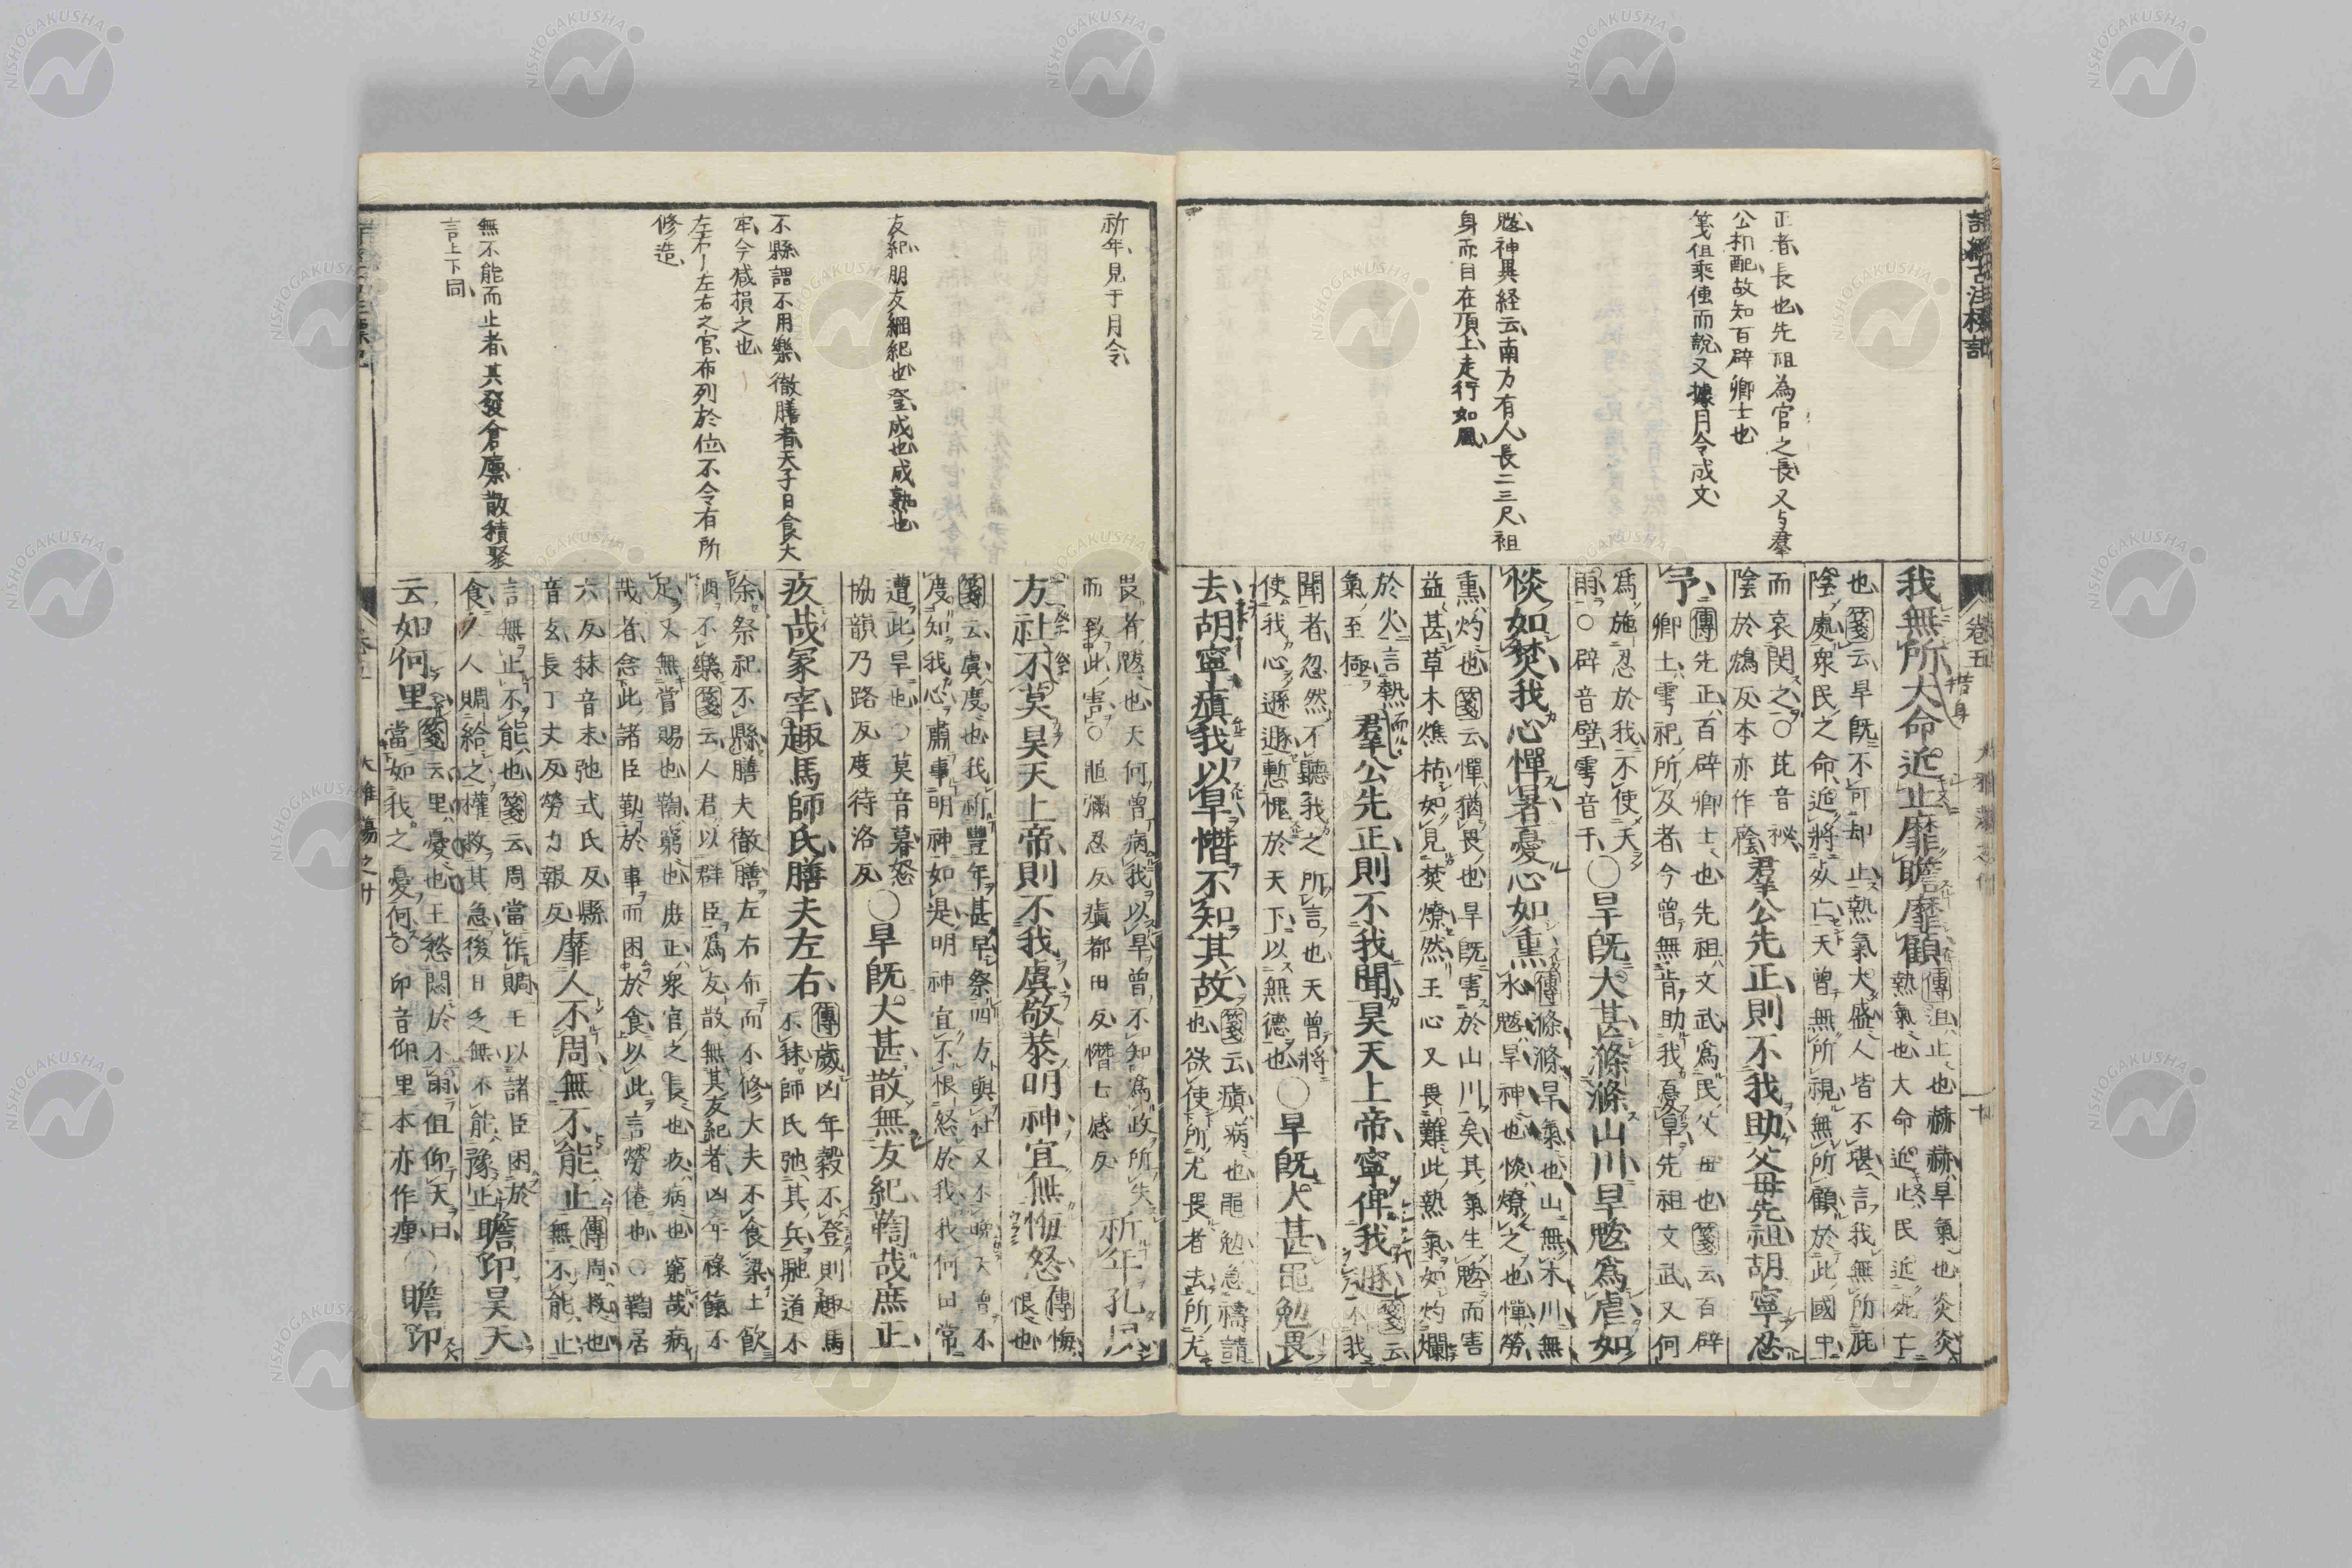 詩經古注標記
卷五
正者長也先祖為官之長又与羣
公相配故知百辟卿士也
箋但乘傳而說又據月令成文
魃神異経云南方有人長二三尺袒
身而目在頂上走行如風
我無所大命近止靡瞻靡顧
傳沮止也赫赫旱氣也炎炎
熱氣也大命近止民近死亡
也箋云旱既不可却止熱氣大盛人皆不堪言我無所庇
陰處衆民之命近將死亡天曾無所視無所顧於此國中
而哀閔之○芘音祕
陰於鴆反本亦作廕
羣公先正則不我助父母先祖胡寧忍
予
傳先正百辟卿士也先祖文武為民父母也箋云百辟
卿士雩祀所及者今曾無肯助我憂旱先祖文武又何
為施忍於我不使天
雨○辟音壁雩音于
○旱既大甚滌滌山川旱魃為虐如
惔如焚我心憚暑憂心如熏
傳滌滌旱氣也山無木川無
水魃旱神也惔燎之也憚勞
熏灼也箋云憚猶畏也旱既害於山川矣其氣生魃而害
益甚草木燋枯如見焚燎然王心又畏難此熱氣如灼爛
於火言熱
氣至極
羣公先正則不我聞昊天上帝寧俾我遯
箋云
不我
聞者忽然不聽我之所言也天曾將
使我心遜遯慙愧於天下以無德也
○旱既大甚黽勉畏
去胡寧瘨我以旱憯不知其故
箋云瘨病也黽勉急禱請
也欲使所尤畏者去所尤
祈年見于月令
友紀朋友綱紀也登成也成熟也
不縣謂不用樂徹膳者天子日食大
牢今減損之也
左右左右之官布列於位不令有所
修造
無不能而止者其發倉廩散積聚
言上下同
畏者魃也天何曾病我以旱曾不知為政所失
而致此害○瘨都田反憯七感反
祈年孔夙
方社不莫昊天上帝則不我虞敬恭明神宜無悔怒
傳悔
恨也
箋云虞度也我祈豐年甚早祭四方與社又不晚天曾不
度知我心肅事明神如是明神宜不恨怒於我我何由常
遭此旱也○莫音暮怒
協韻乃路反度待洛反
○旱既大甚散無友紀鞫哉庶正
疚哉冢宰趣馬師氏膳夫左右
傳歲凶年穀不登則趣馬
不秣師氏弛其兵馳道不
除祭祀不縣膳夫徹膳左右布而不修大夫不食粱士飲
酒不樂箋云人君以群臣為友散無其友紀者凶年祿餼不
足又無嘗賜也鞫窮也庶正衆官之長也疚病也窮哉病
哉者念此諸臣勤於事而困於食以此言勞倦也○鞫居
六反秣音末弛式氏反縣
音玄長丁丈反勞力報反
靡人不周無不能止
傳周救也
無不能止
言無止不能也箋云周當作賙王以諸臣困於
食人人賙給之權救其急後日乏無不能豫止
瞻卬昊天
云如何里
箋云里憂也王愁悶於不雨但仰天曰
當如我之憂何○卬音仰里本亦作㾖
○瞻卬
大雅蕩之什